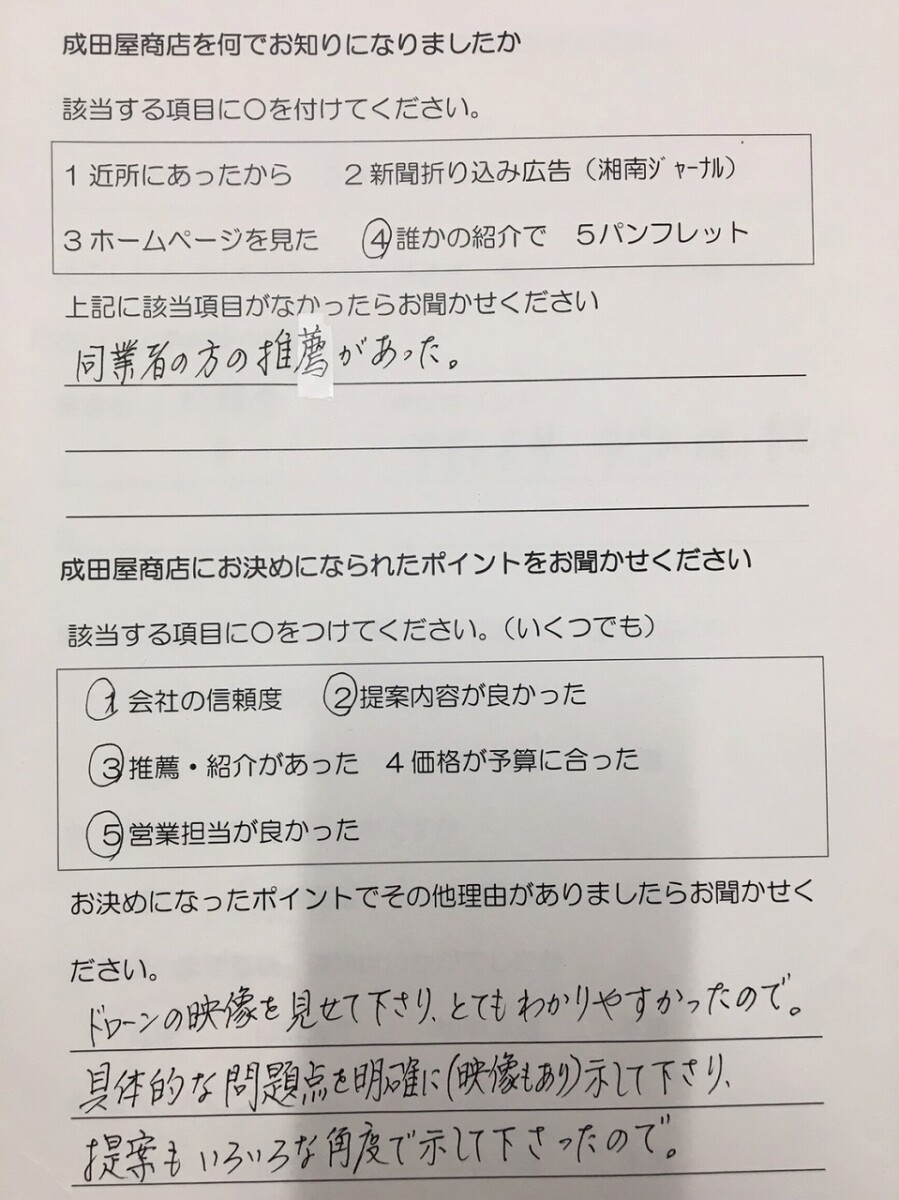 成田屋商店を何でお知りになりましたか
該当する項目に〇を付けてください。
1 近所にあったから 2 新聞折り込み広告（湘南ｼﾞｬｰﾅﾙ）
3 ホームページを見た ④誰かの紹介で 5パンフレット
上記に該当項目がなかったらお聞かせください
同業者の方の推薦があった。
成田屋商店にお決めになられたポイントをお聞かせください
該当する項目に〇をつけてください。（いくつでも）
① 会社の信頼度 ②提案内容が良かった
③推薦・紹介があった 4 価格が予算に合った
⑤営業担当が良かった
お決めになったポイントでその他理由がありましたらお聞かせく
ださい。
ドローンの映像を見せて下さり、とてもわかりやすかったので。
具体的な問題点を明確に(映像もあり)示して下さり、
提案もいろいろな角度で示して下さったので。